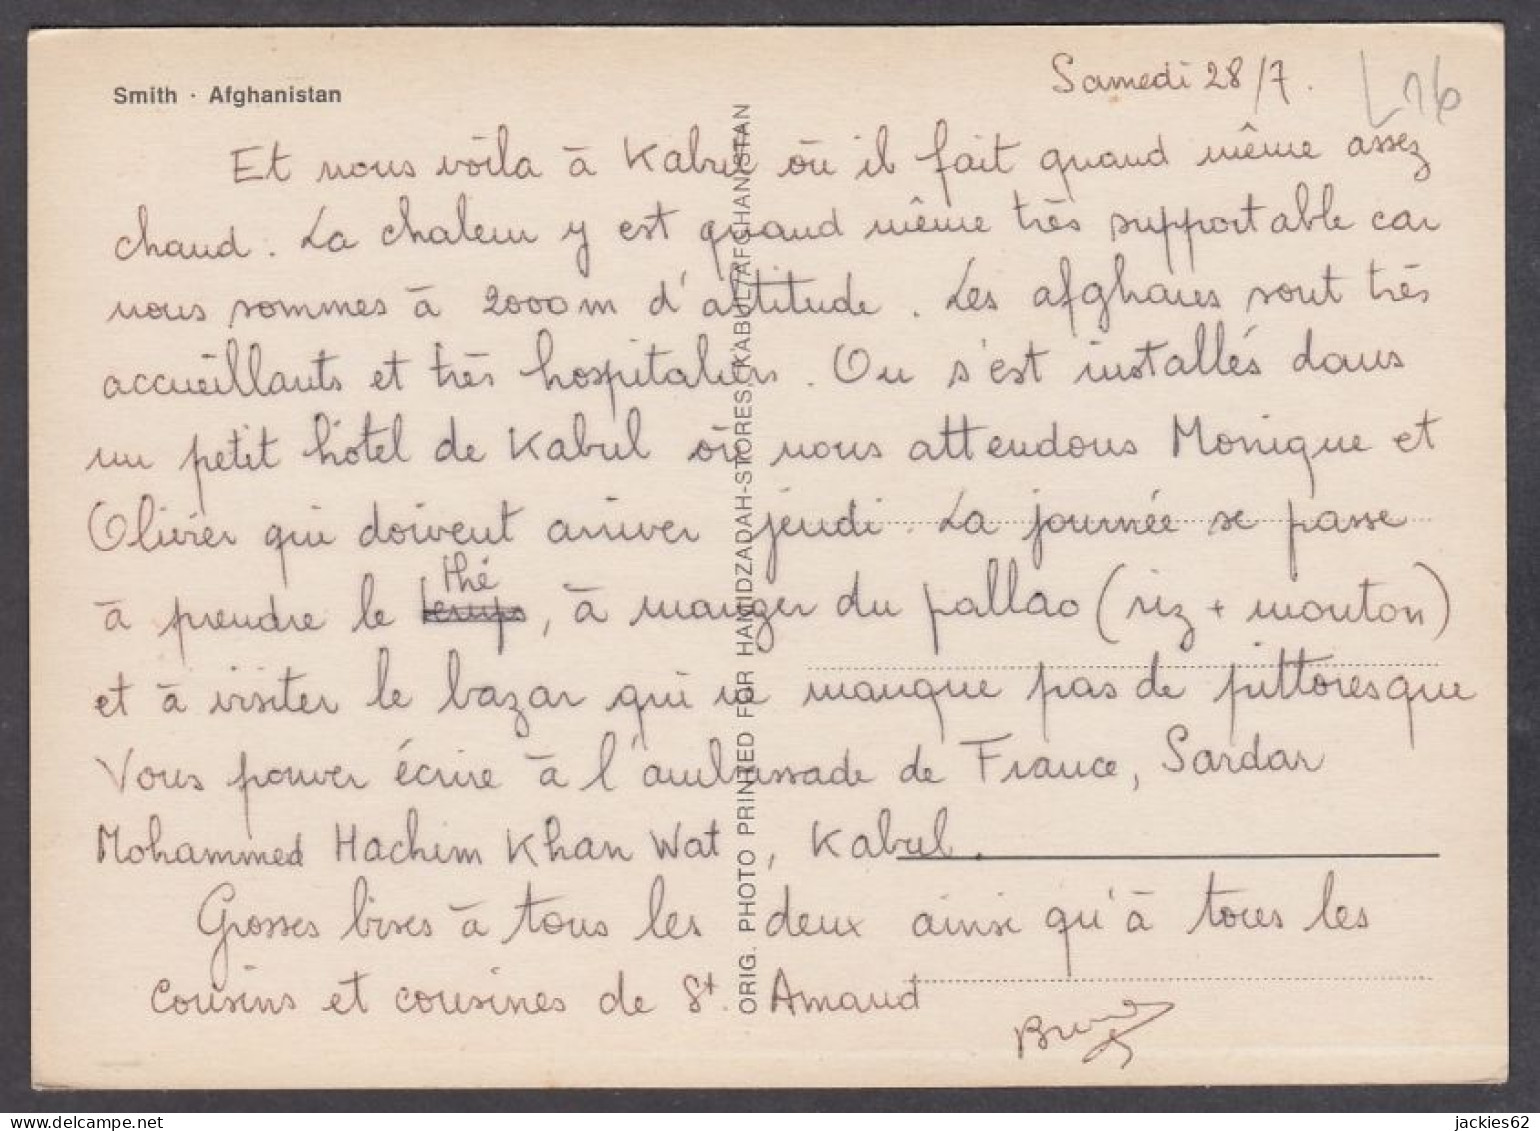 Smith · Afghanistan
Samedi 28/7.
L 16
Et nous voila à Kabul où il fait quand même assez
chaud. La chaleur y est quand même très supportable car
nous sommes à 2000m d'altitude. Les afghans sont très
accueillants et très hospitaliers. On s'est installés dans
un petit hôtel de Kabul où nous attendons Monique et
Olivier qui doivent arriver jeudi. La journée se passe
à prendre le temps thé, à manger du pallao (riz + mouton)
et à visiter le bazar qui ne manque pas de pittoresque
Vous pouver écrire à l'ambassade de France, Sardar
Mohammed Hachim Khan Wat, Kabul.
Grosses bises à tous les deux ainsi qu'à tous les
cousins et cousines de St. Amand
Bruno
ORIG. PHOTO PRINTED FOR HAMIDZADAH-STORES, KABUL/AFGHANISTAN
jackies62